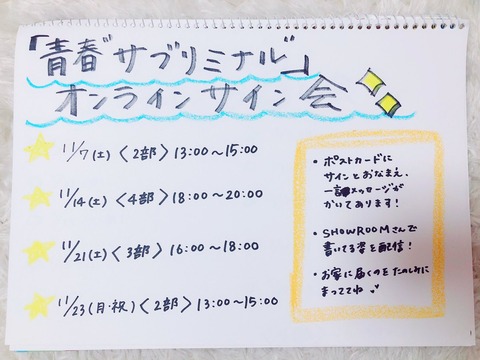 「青春"サブリミナル"」
オンラインサイン会
11/7(土)〈2部〉13:00〜15:00
11/14(土)〈4部〉18:00〜20:00
11/21(土)〈3部〉16:00〜18:00
11/23(月・祝)〈2部〉13:00〜15:00
・ポストカードに
サインとおなまえ、
一言メッセージが
かいてあります!
・SHOWROOMさんで
書いてる姿を配信!
・お家に届くのをたのしみに
まっててね